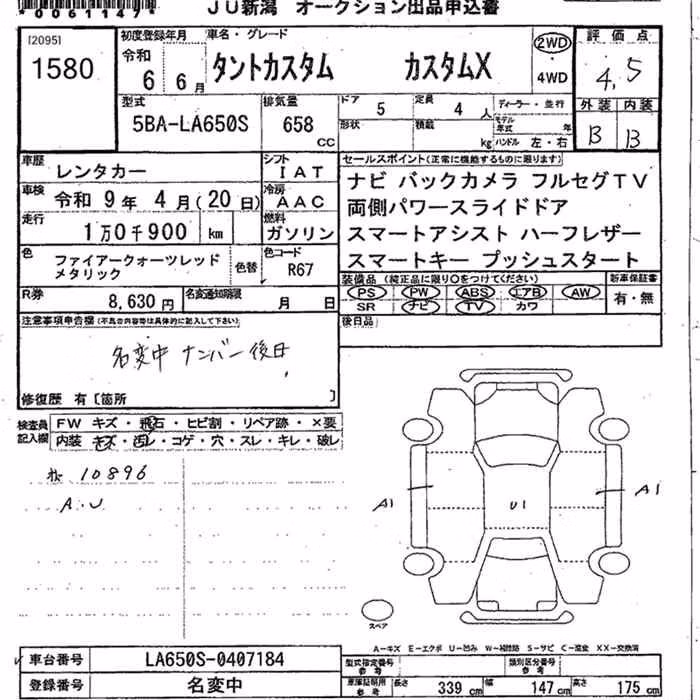 *0061147*
JU新潟 オークション出品申込書
[2095]
1580
初度登録年月
令和
6 6月
車名・グレード
タントカスタム カスタムX
2WD
4WD
評価点
4.5
型式
5BA-LA650S
排気量
658
cc
ドア 5
定員 4 人
形状
積載 kg
ディーラー・並行
モデル年式 年
ハンドル 左・右
外装 内装
B B
車歴 レンタカー
シフト IAT
車検 令和 9年 4月(20日)
冷房 AAC
走行 1万0千900 km
燃料 ガソリン
セールスポイント(正常に機能するものに限ります)
ナビ バックカメラ フルセグTV
両側パワースライドドア
スマートアシスト ハーフレザー
スマートキー プッシュスタート
色 ファイアークォーツレッド
メタリック
色替
色コード
R67
R券 8,630円
名変通知期限 月 日
装備品(純正品に限り○をつけてください)
PS PW ABS エアB AW
SR ナビ TV カワ
新車保証書
有・無
注意事項申告欄(不具合内容等は具体的に記入して下さい)
名変中 ナンバー後日
修復歴 有〔箇所 〕
後日品
検査員記入欄
FW キズ・飛石・ヒビ割・リペア跡・×要
内装 キズ・汚レ・コゲ・穴・スレ・キレ・破レ
10896
A.U
A1 U1 A1
スペア
A-キズ E-エクボ U-凹み W-補修跡 S-サビ C-腐食 XX-交換済
車台番号 LA650S-0407184
登録番号 名変中
型式指定番号
類別区分番号
車庫証明用参考 長さ 339cm 幅参考 147cm 高さ参考 175cm